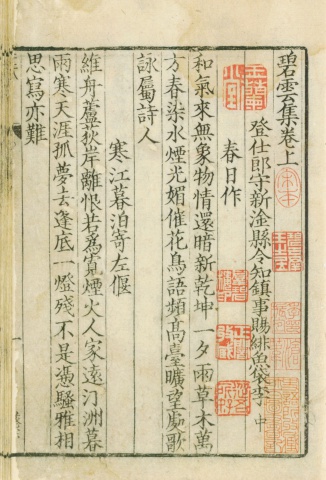 碧雲集卷上
登仕郎守新淦縣令知鎮事賜緋魚袋李中
春日作
和氣來無象物情還暗新乾坤一夕雨草木萬
方春染水煙光媚催花鳥語頻高臺曠望處歌
詠屬詩人
寒江暮泊寄左偃
維舟蘆荻岸離恨若為寬煙火人家遠汀洲暮
雨寒天涯孤夢去逢底一燈殘不是憑騷雅相
思寫亦難